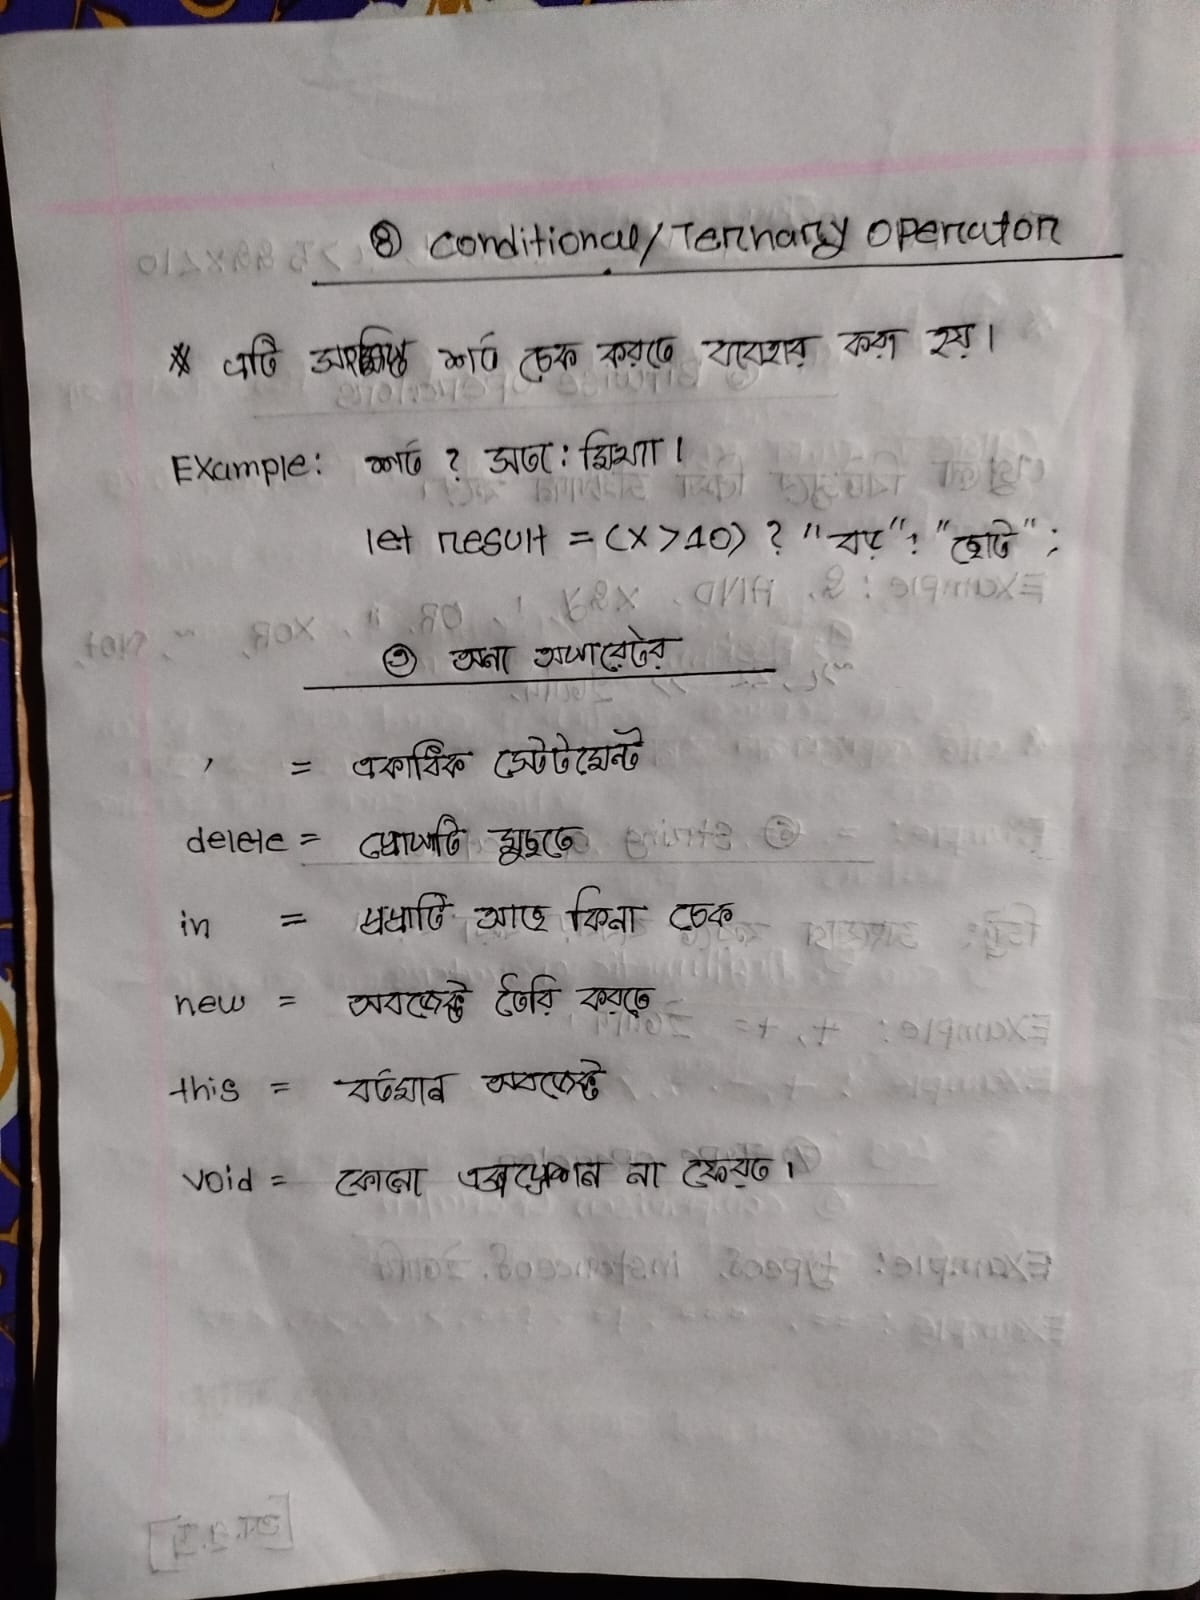 ⑧ Conditional/Ternary Operator
* এটি সংক্ষিপ্ত শর্ত চেক করতে ব্যবহার করা হয়।
Example: শর্ত ? সত্য : মিথ্যা।
let result = (x > 10) ? "বড়" : "ছোট";
⑨ অন্য অপারেটর
, = একাধিক স্টেটমেন্ট
delete = প্রোপার্টি মুছতে
in = প্রপার্টি আছে কিনা চেক
new = অবজেক্ট তৈরি করতে
this = বর্তমান অবজেক্ট
void = কোনো এক্সপ্রেশন না ফেরত।